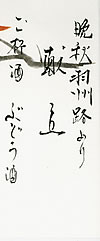 晩秋羽州路より
献上
ご好酒
ぶどう酒